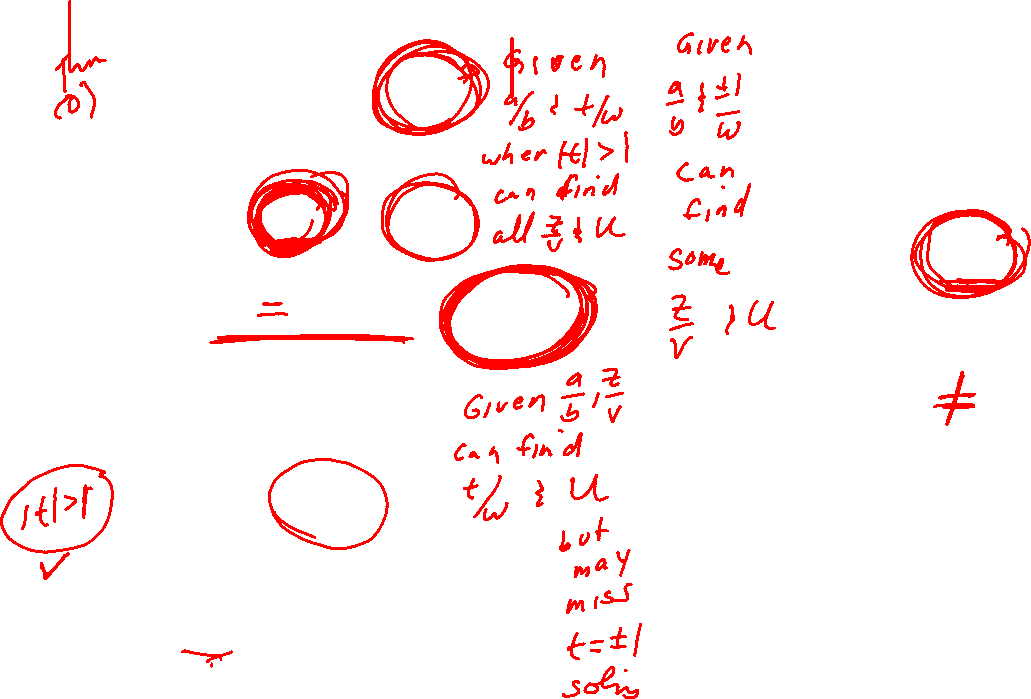 Thm
(0)
Given
a/b & t/w
wher |t| > 1
can find
all z/v & U
Given
a/b & ±1/w
can
find
some
z/v & U
=
≠
Given a/b, z/v
can find
t/w & U
but
may
miss
t = ±1
solns
|t| > 1